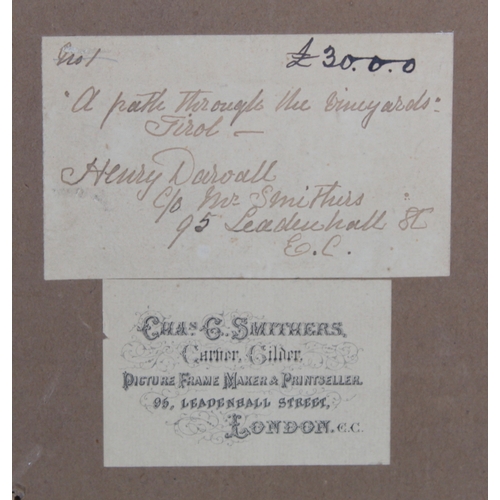 No 1
£30.0.0
"A path through the vineyards"
Tirol —
Henry Darvall
c/o Mr Smithers
95 Leadenhall St
E.C.
Chas G. Smithers,
Carver, Gilder,
Picture Frame Maker & Printseller.
95, Leadenhall Street,
London. E.C.